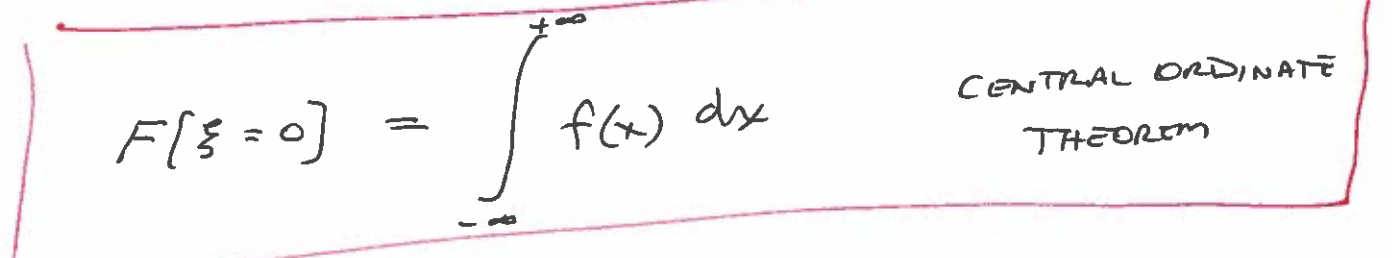 F[ξ = 0] = ∫_{-∞}^{+∞} f(x) dx
CENTRAL ORDINATE
THEOREM